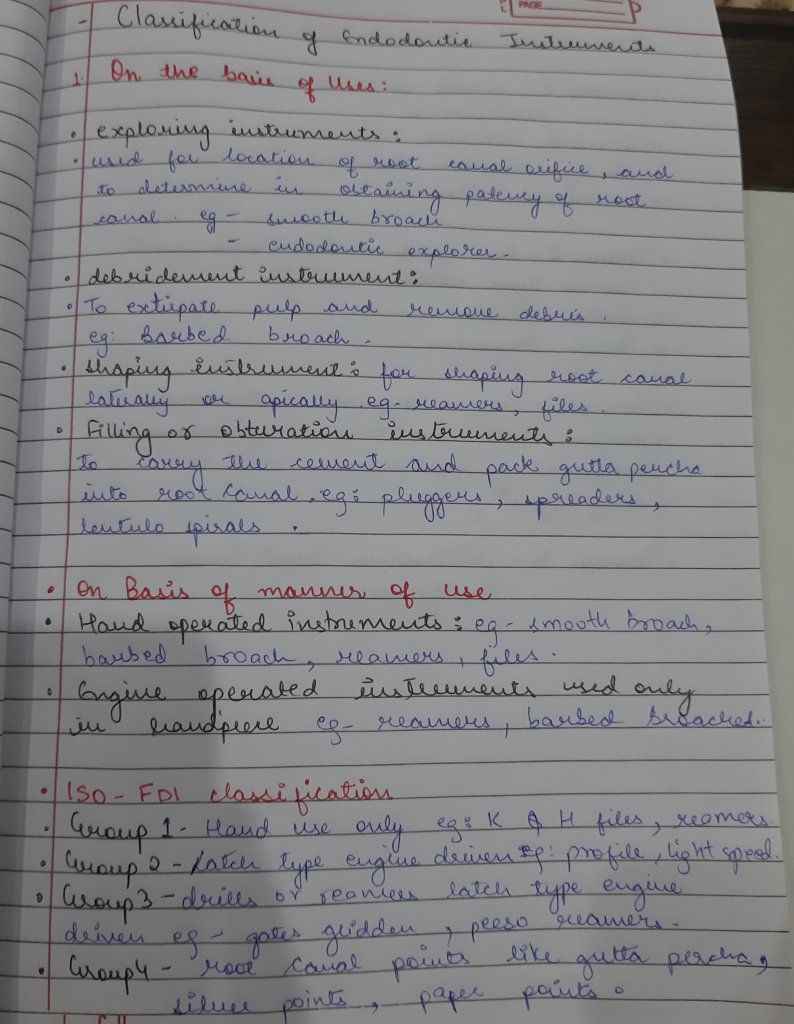 PAGE
- Classification of Endodontic Instruments
1. On the basis of Uses:
• exploring instruments:
• used for location of root canal orifice, and
to determine in obtaining patency of root
canal. eg - smooth broach
- endodontic explorer.
• debridement instrument:
• To extirpate pulp and remove debris.
eg: Barbed broach.
• shaping instrument: for shaping root canal
laterally or apically eg- reamers, files.
• Filling or obturation instruments:
to carry the cement and pack gutta percha
into root canal. eg: pluggers, spreaders,
lentulo spirals.
• On Basis of manner of use
• Hand operated instruments: eg - smooth broach,
barbed broach, reamers, files.
• Engine operated instruments used only
in handpiece eg- reamers, barbed broaches.
• ISO - FDI classification
• Group 1 - Hand use only eg: K & H files, reamers.
• Group 2 - Latch type engine driven eg: profile, light speed.
• Group 3 - drills or reamers latch type engine
driven eg - gates glidden, peeso reamers.
• Group 4 - root canal points like gutta percha,
silver points, paper points.